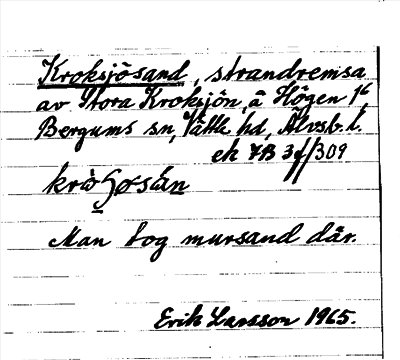 Kroksjösand, strandremsa
av Stora Kroksjön, å Högen 1⁶,
Bergums sn, Vättle hd, Älvsb. l.
ek 7B 3f/309
Man tog mursand där.
Erik Larsson 1965.